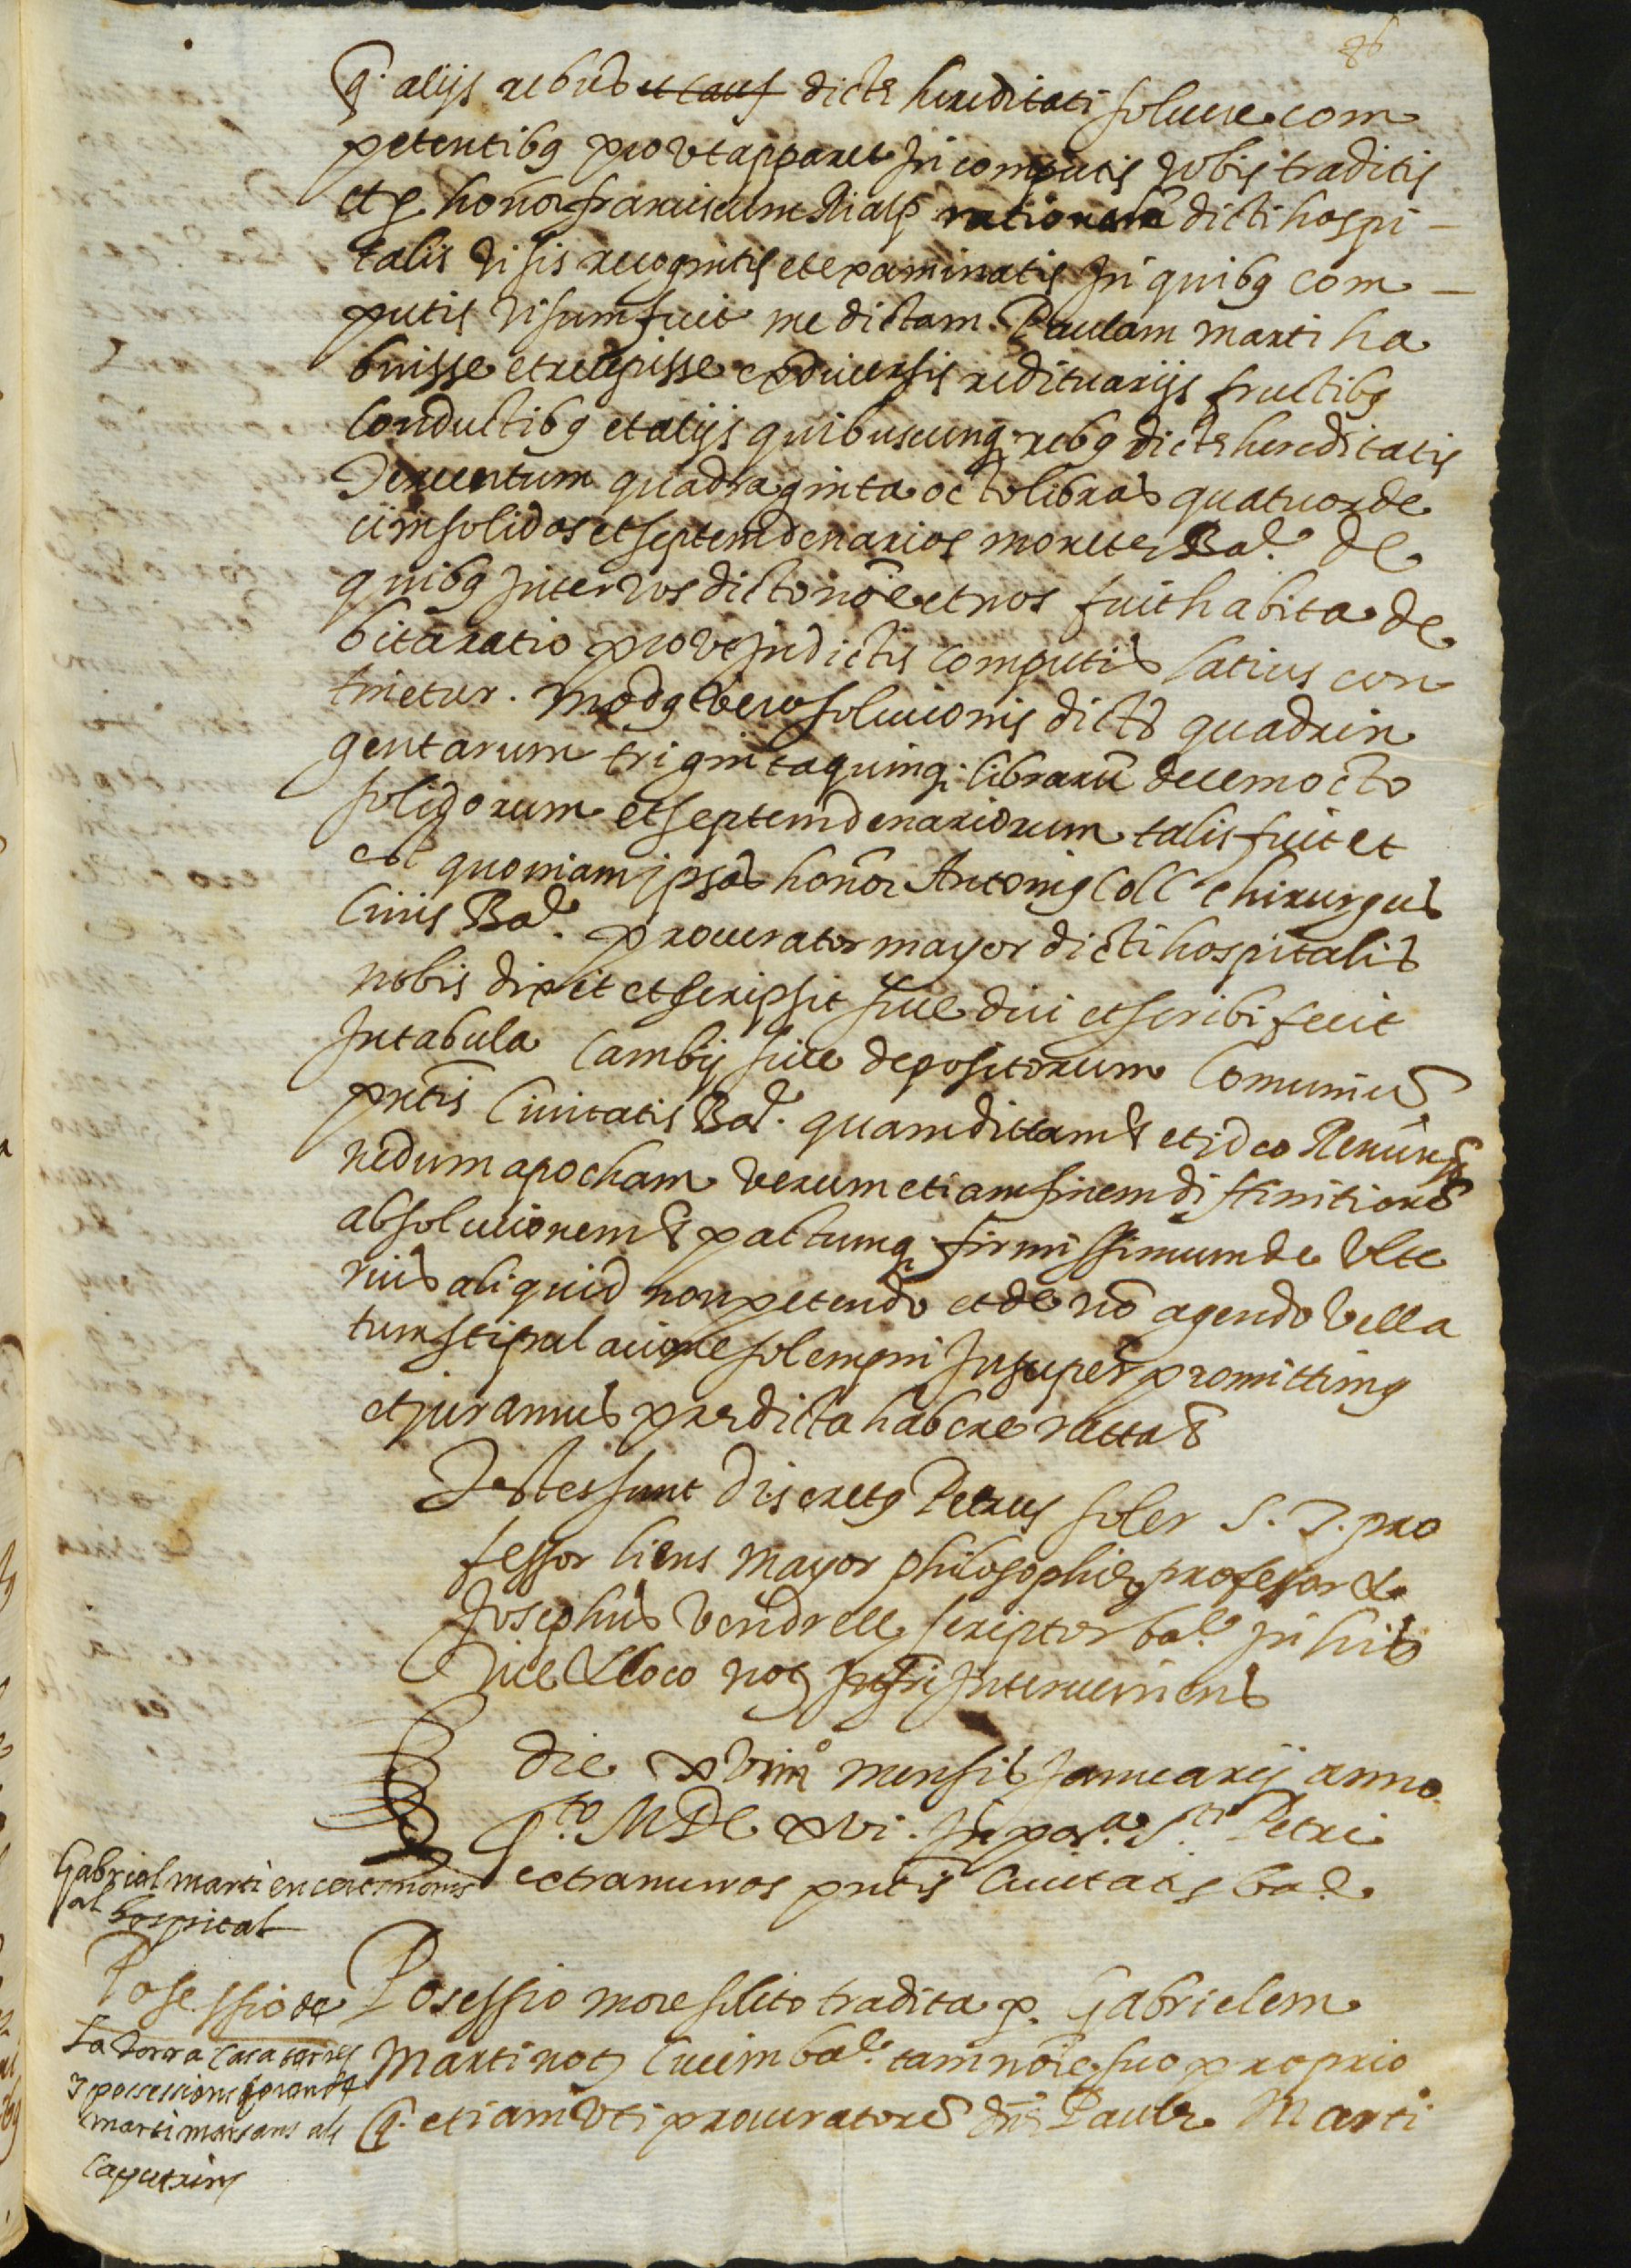 36
q. alijs rebus et caus dictę hereditati soluere com
petentibq prout apparet in computis vobis traditis
et p honor franciscum Rialp rationalē dicti hospi –
talis visis recognitis et examinatis In quibq com –
putis visum fuit me dictam Paulam marti ha
buisse et recepisse ex diuersis redituarijs fructibq
conductibq et alijs quibuscunq rebq dictę hereditatis
Tercentum quadraginta octo libras quatuorde
cim solidos et septem denarios monetę Bar. de
quibq inter vos dicto noīe et nos fuit habita de
bita ratio prout in dictis computis latius con
tinetur. Modq vero solucionis dictę quadrin
gentarum triginta quinq; librarū decem octo
solidorum et septem denariorum talis fuit et
est quoniam ipse honor Antoniq Coll Chirurgus
Ciuis Bar. procurator mayor dicti hospitalis
nobis dixit et scripsit siue dici et scribi fecit
In tabula Cambij siue depositorum Comuniū
pn̄tis Ciuitatis Bar. quam dictam & et ideo Renun &
nedum apocham verum etiam finem diffinitionē
absolucionem & pactumq firmissimum de vlte
rius aliquid non petendo et de nō agendo vella
tum stipulacione solempni Insuper promittimq
et juramus prędicta habere ratta &
Testes sunt discretq Petrus soler S. T. pro
fessor liens mayor philosophię professor &
Josephus Vendrell scriptor bar. In his
vice & loco not interveniens
die xviiiº mensis Januarij anno
pto MDC xvi. In pora. Sti Petri
extramuros pn̄tis Ciuitatis bar.
Gabriel marti en ceremonies
al hospital
Posessio de
la torra casa terres
y possessions foren de
marti marsans als
caputxins
Posessio more solito tradita p. Gabrielem
Marti not Ciuem bar. tam noīe suo proprio
q. etiam vti procuratorē dn̄ę Paulę Marti